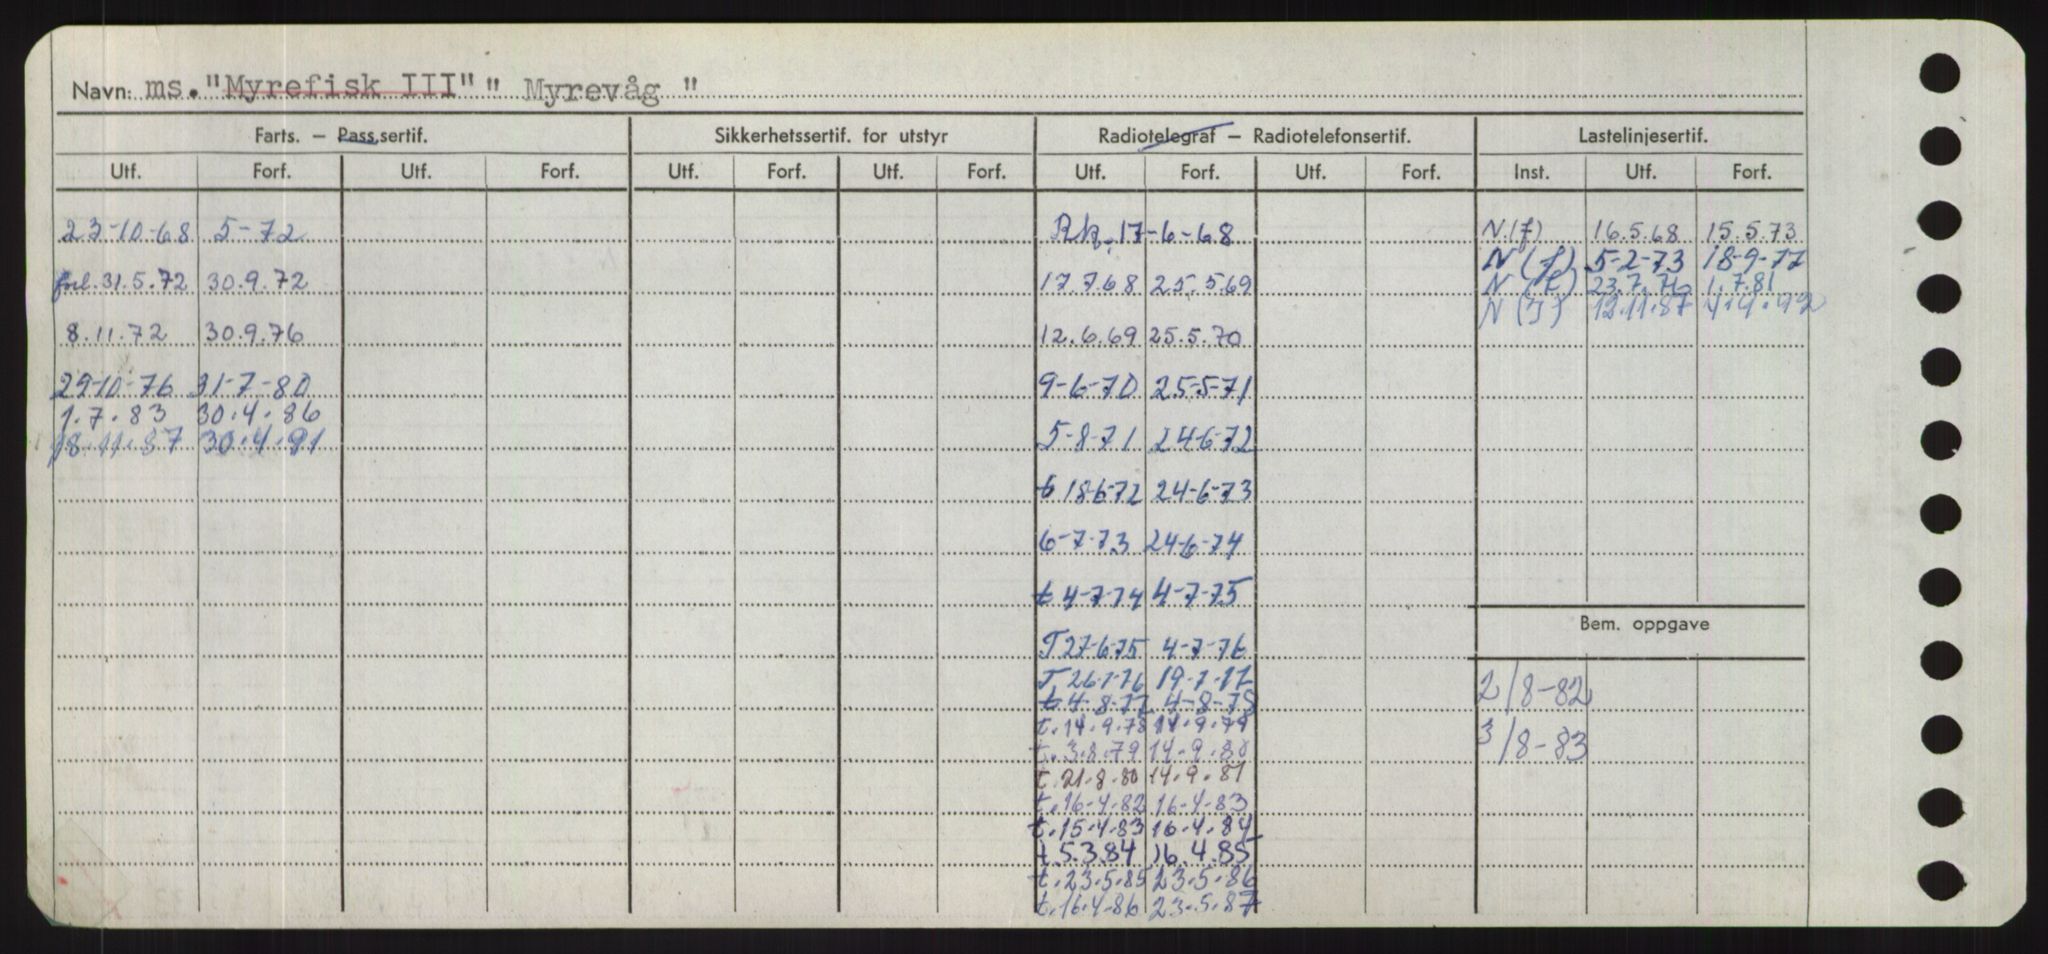 Navn: ms. "Myrefisk III" " Myrevåg "
Farts. – Pass.sertif. Sikkerhetssertif. for utstyr Radiotelegraf – Radiotelefonsertif. Lastelinjesertif.
Utf. Forf. Utf. Forf. Utf. Forf. Utf. Forf. Utf. Forf. Utf. Forf. Inst. Utf. Forf.
23-10-68 5-72 Rk. 17-6-68 N.(f) 16.5.68 15.5.73
N (f) 5-2-73 18-9-77
forl. 31.5.72 30.9.72 17.7.68 25.5.69 N (f) 23.7.76 1.7.81
N (f) 12.11.87 4.4.92
8.11.72 30.9.76 12.6.69 25.5.70
29-10-76 31-7-80 9-6-70 25-5-71
1.7.83 30.4.86
18.11.87 30.4.91 5-8-71 24-6-72
t 18-6-72 24-6-73
6-7-73 24-6-74
t 4-7-74 4-7-75
Bem. oppgave
T 27-6-75 4-7-76
T 26-7-76 19-7-77 2/8-82
t 4-8-77 4-8-78
t. 14.9.78 14.9.79
t. 3.8.79 14.9.80 3/8-83
t. 21.8.80 14.9.81
t. 16.4.82 16.4.83
t. 15.4.83 16.4.84
t 5.3.84 16.4.85
t. 23.5.85 23.5.86
t. 16.4.86 23.5.87